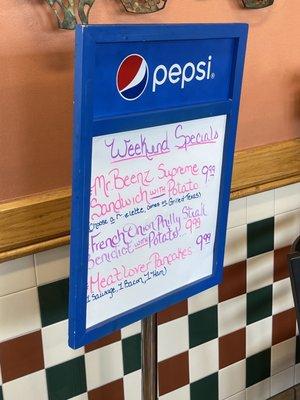 pepsi
Weekend Specials
Mr. Beenz Supreme
Sandwich with Potato 9.99
Omelette, or Grilled Toast)
French Onion Philly Steak
Benedict with Potato 9.99
Meat Lover Pancakes
1 Sausage, 1 Bacon, 1 Ham) 9.99